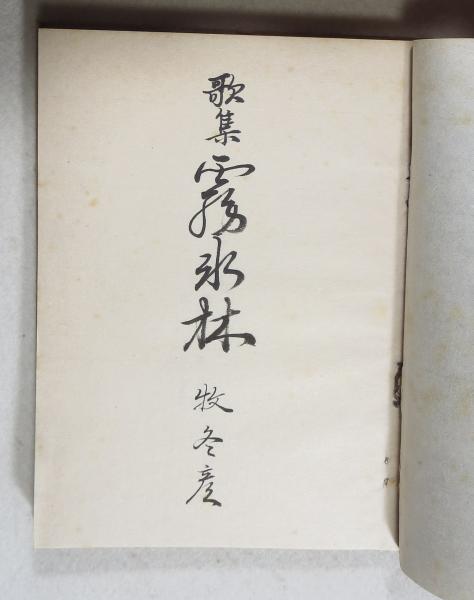 歌集 霧氷林 牧冬彦